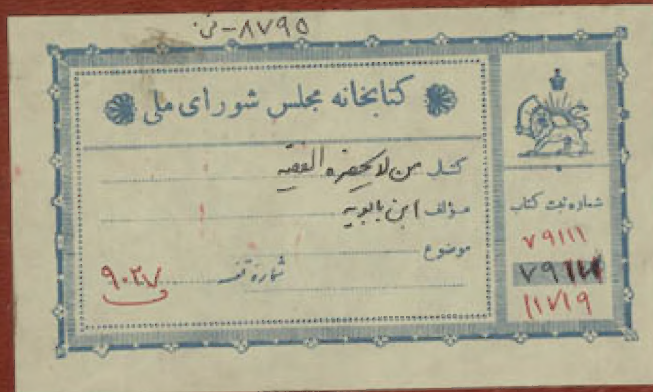 ۸۷۹۵-ف
کتابخانه مجلس شورای ملی
کتاب من لا یحضره الفقیه
مؤلف ابن بابویه
موضوع
شماره قفسه ۹۰۳۷
شماره ثبت کتاب
۷۹۱۱۱
۱۱۷۱۹